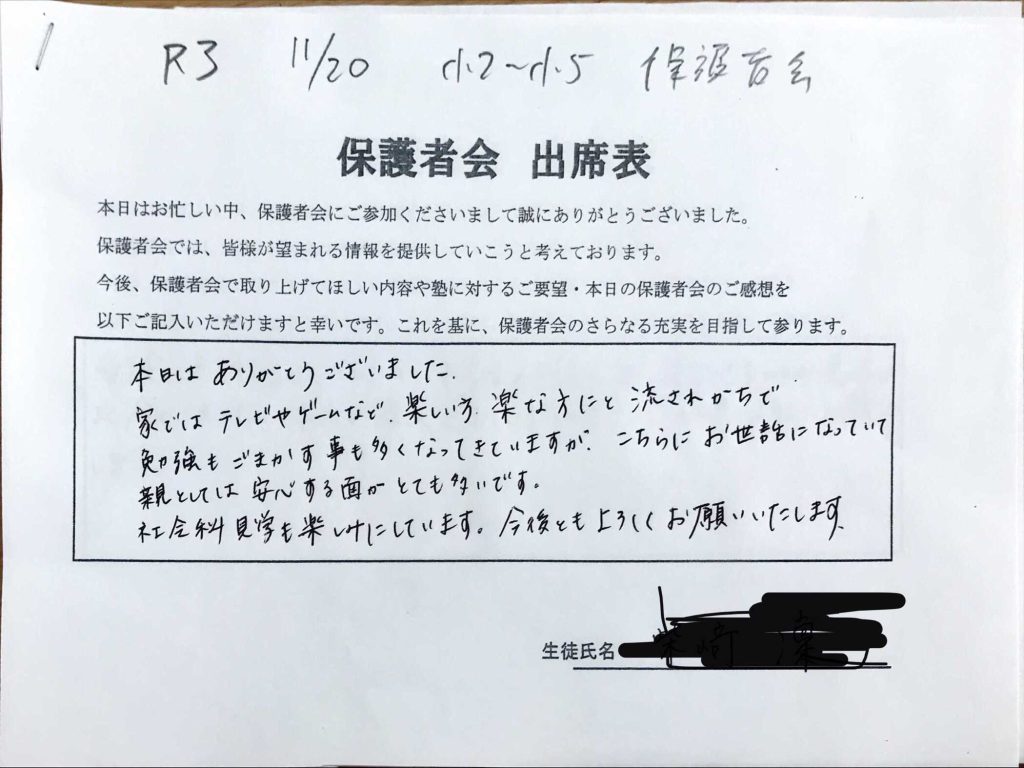 R3 11/20 小2～小5 保護者会
保護者会 出席表
本日はお忙しい中、保護者会にご参加くださいまして誠にありがとうございました。
保護者会では、皆様が望まれる情報を提供していこうと考えております。
今後、保護者会で取り上げてほしい内容や塾に対するご要望・本日の保護者会のご感想を
以下ご記入いただけますと幸いです。これを基に、保護者会のさらなる充実を目指して参ります。
本日は ありがとうございました.
家では テレビやゲームなど、楽しい方 楽な方にと 流されがちで
勉強も ごまかす事も多くなってきていますが、こちらに お世話になっていて
親としては 安心する面が とても多いです。
社会科見学も楽しみにしています。今後とも よろしく お願いいたします
生徒氏名